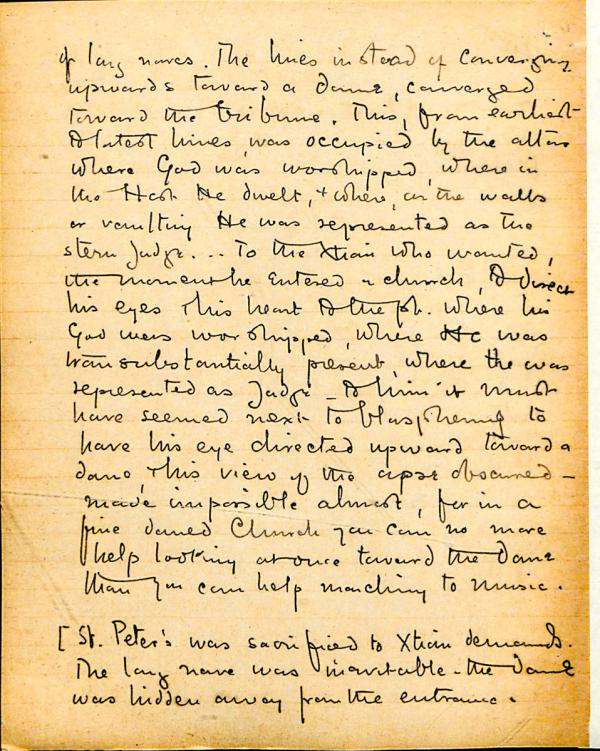 of long naves. The lines instead of converging
upwards toward a dome, converged
toward the tribune. This, from earliest
to latest times, was occupied by the altar
where God was worshipped, where in
the Host He dwelt, + where, on the walls
or vaulting He was represented as the
stern Judge... To the Xtian who wanted,
the moment he entered a church, to direct
his eyes + his heart to the pl. where his
God was worshipped, where He was
transubstantially present, where He was
represented as Judge – to him it must
have seemed next to blasphemy to
have his eye directed upward toward a
dome, + his view of the apse obscured –
made impossible almost, for in a
fine domed Church you can no more
help looking at once toward the dome
than you can help marching to music.
[ St. Peter's was sacrificed to Xtian demands.
The long nave was inevitable – the dome
was hidden away from the entrance.